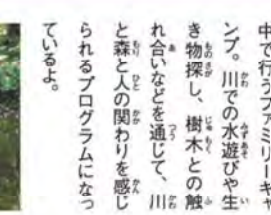 中で行うファミリーキャ
ンプ。川での水遊びや生
き物探し、樹木との触
れ合いなどを通じて、川
と森と人の関わりを感じ
られるプログラムになっ
ているよ。